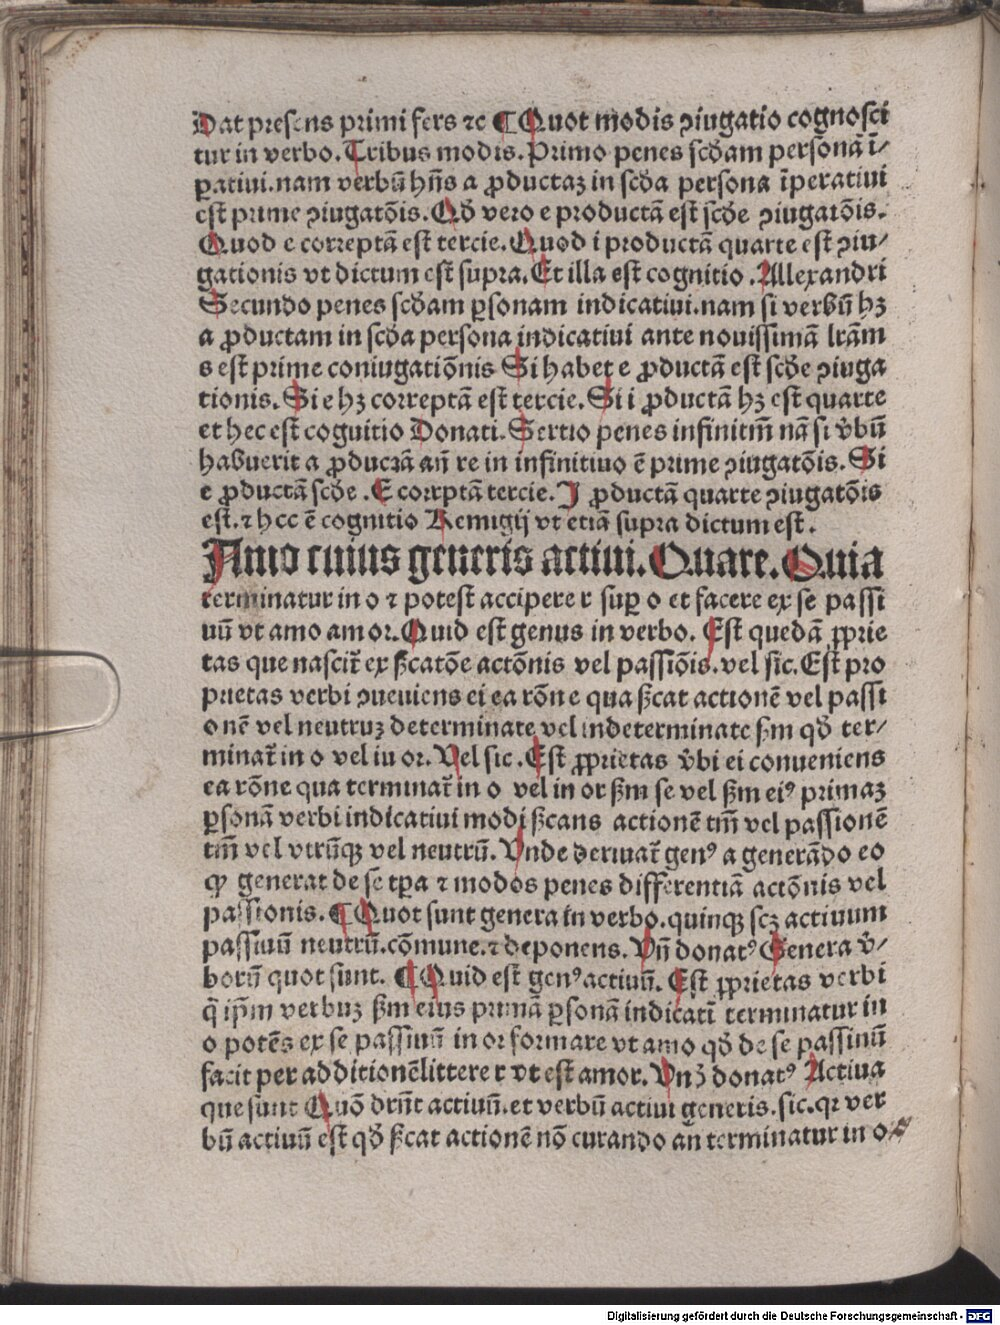 Dat presens primi fers ⁊c ¶ Quot modis ꝯiugatio cognosci
tur in verbo. Tribus modis. Primo penes scđam personā ī/
ꝑatiui. nam verbū hñs a ꝓductaꝫ in scđa persona īperatiui
est prime ꝯiugatōis. Qđ vero e productā est scđe ꝯiugatōis.
Quod e correptā est tercie. Quod i productā quarte est ꝯiu/
gationis vt dictum est supra. Et illa est cognitio. Allexandri
Secundo penes scđam ꝑsonam indicatiui. nam si verbū hꝫ
a ꝓductam in scđa persona indicatiui ante nouissimā lrām
s est prime coniugatiōnis Si habet e ꝓductā est scđe ꝯiuga
tionis. Si e hꝫ correptā est tercie. Si i ꝓductā hꝫ est quarte
et hec est coguitio Donati. Sertio penes infinitm̄ nā si v̄bū
habuerit a ꝓducтā añ re in infinitiuo ē prime ꝯiugatōis. Si
e ꝓductā scđe. E corrptā tercie. I ꝓductā quarte ꝯiugatōis
est. ⁊ hcc ē cognitio Remigij vt etiā supra dictum est.
Amo cuius generis actiui. Quare. Quia
terminatur in o ⁊ potest accipere r suꝑ o et facere ex se passi
uū vt amo amor. Quid est genus in verbo. Est quedā ꝓprie
tas que nascit᷑ ex ẜcatōe actōnis vel passiōis. vel sic. Est pro
prietas verbi ꝯueuiens ei ea rōne qua ẜcat actionē vel passi
onē vel neutruꝫ determinate vel indeterminate ẜm qđ ter/
minat᷑ in o vel iu or. Vel sic. Est ꝓprietas v̄bi ei conueniens
ea rōne qua terminat᷑ in o vel in or ẜm se vel ẜm eiꝰ primaꝫ
ꝑsonā verbi indicatiui modi ẜcans actionē tm̄ vel passionē
tm̄ vel vtrūqꝫ vel neutrū. Vnde deriuat᷑ genꝰ a generādo eo
ꝙ generat de se tꝑa ⁊ modos penes differentiā actōnis vel
passionis. ¶ Quot sunt genera in verbo. quinqꝫ scꝫ actiuum
passiuū neutrū. cōmune. ⁊ deponens. Vñ donatꝰ Genera v̄/
borū quot sunt. ¶ Quid est genꝰ actiuū. Est ꝓprietas verbi
q̄ ip̄m verbuꝫ ẜm eius primā ꝑsonā indicatī terminatur in
o potēs ex se passiuū in or formare vt amo qđ de se passiuū
facit per additionēlittere r vt est amor. Vnꝫ donatꝰ Actiua
que sunt Quō drn̄t actiuū. et verbū actiui generis. sic. qꝛ ver
bū actiuū est qđ ẜcat actionē nō curando an̄ terminatur in o
Digitalisierung gefördert durch die Deutsche Forschungsgemeinschaft - DFG